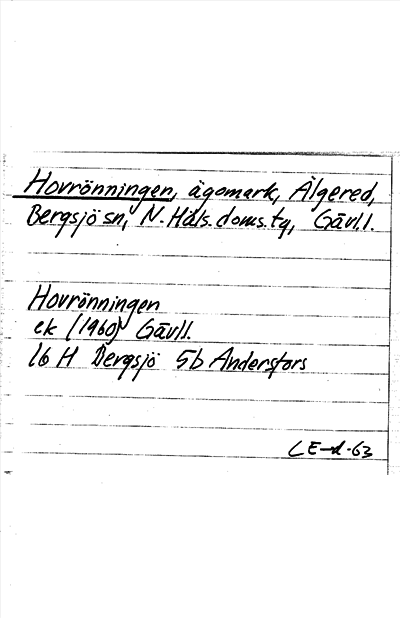 Hovrönningen, ägomark, Älgered,
Bergsjö sn, N. Häls. doms. tg, Gävl.l.
Hovrönningen
ek (1960) Gävll.
16 H Bergsjö 5b Andersfors
LE-d-63